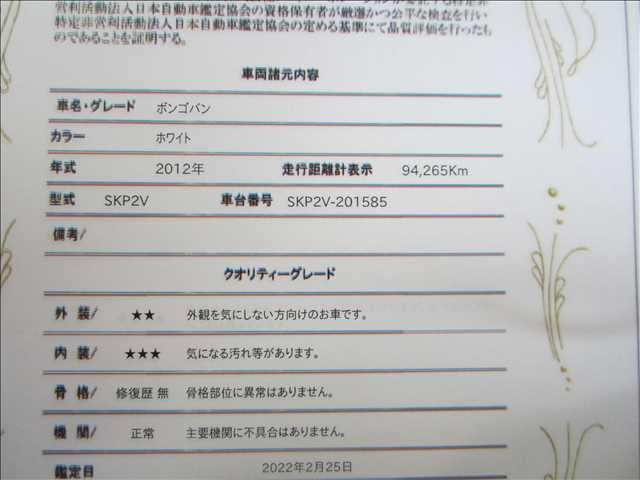 営利活動法人日本自動車鑑定協会の資格保有者が厳選かつ公平な検査を行い
特定非営利活動法人日本自動車鑑定協会の定める基準にて品質評価を行ったも
のであることを証明する。
車両諸元内容
車名・グレード ボンゴバン
カラー ホワイト
年式 2012年 走行距離計表示 94,265Km
型式 SKP2V 車台番号 SKP2V-201585
備考/
クオリティーグレード
外 装/ ★★ 外観を気にしない方向けのお車です。
内 装/ ★★★ 気になる汚れ等があります。
骨 格/ 修復歴 無 骨格部位に異常はありません。
機 関/ 正常 主要機関に不具合はありません。
鑑定日 2022年2月25日